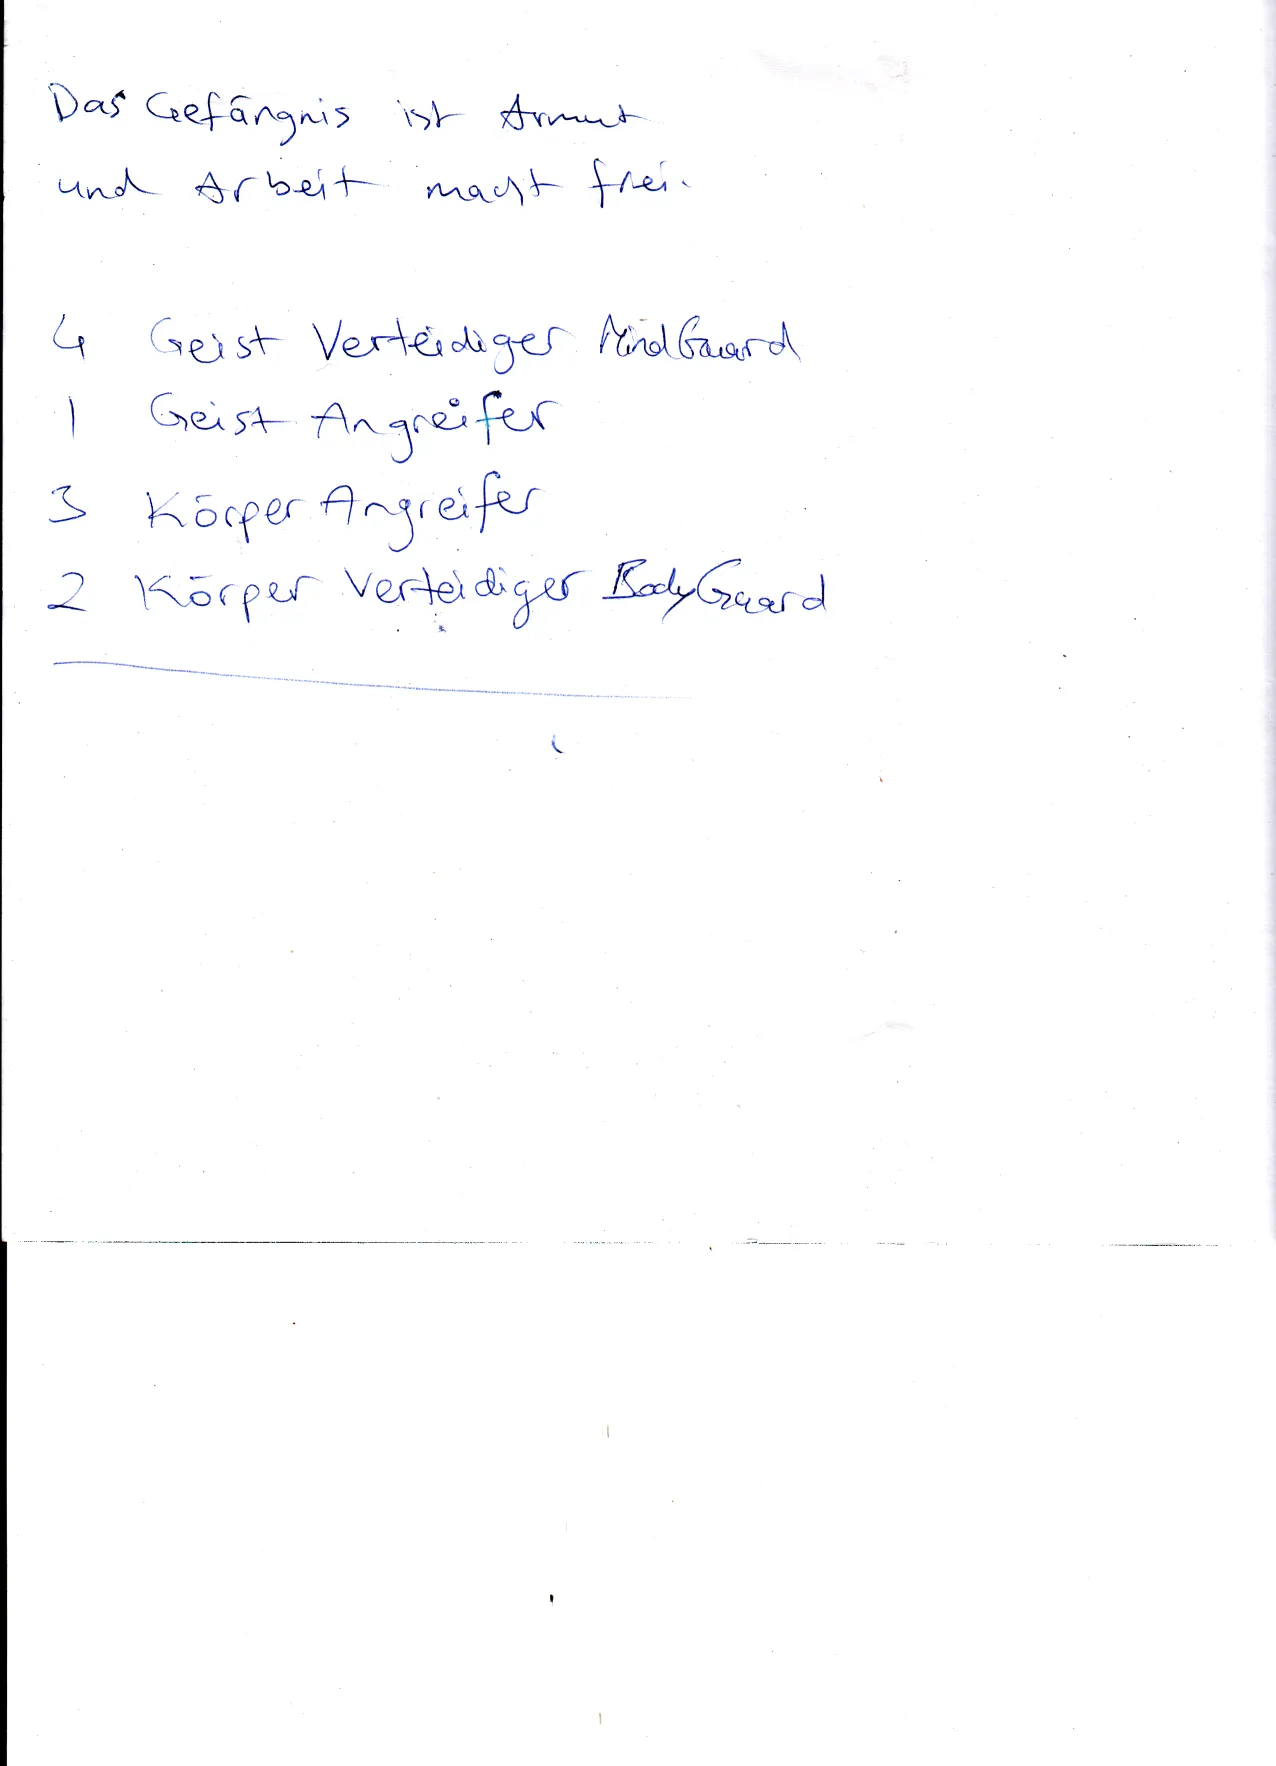 Das Gefängnis ist Armut
und Arbeit macht frei.
4 Geist Verteidiger MindGuard
1 Geist Angreifer
3 Körper Angreifer
2 Körper Verteidiger BodyGuard